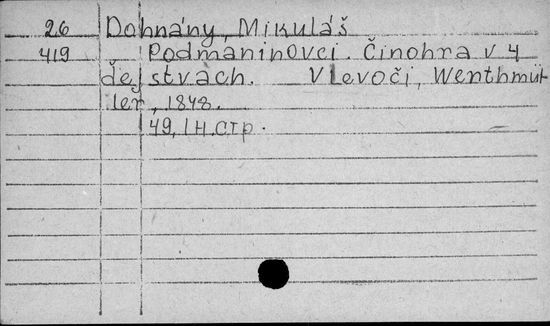 26 Dohnány, Mikuláš
419 Podmaninovci. Činohra v 4
dejstvách. V Levoči, Werthmül
ler, 1848.
49, 1 н. стр.